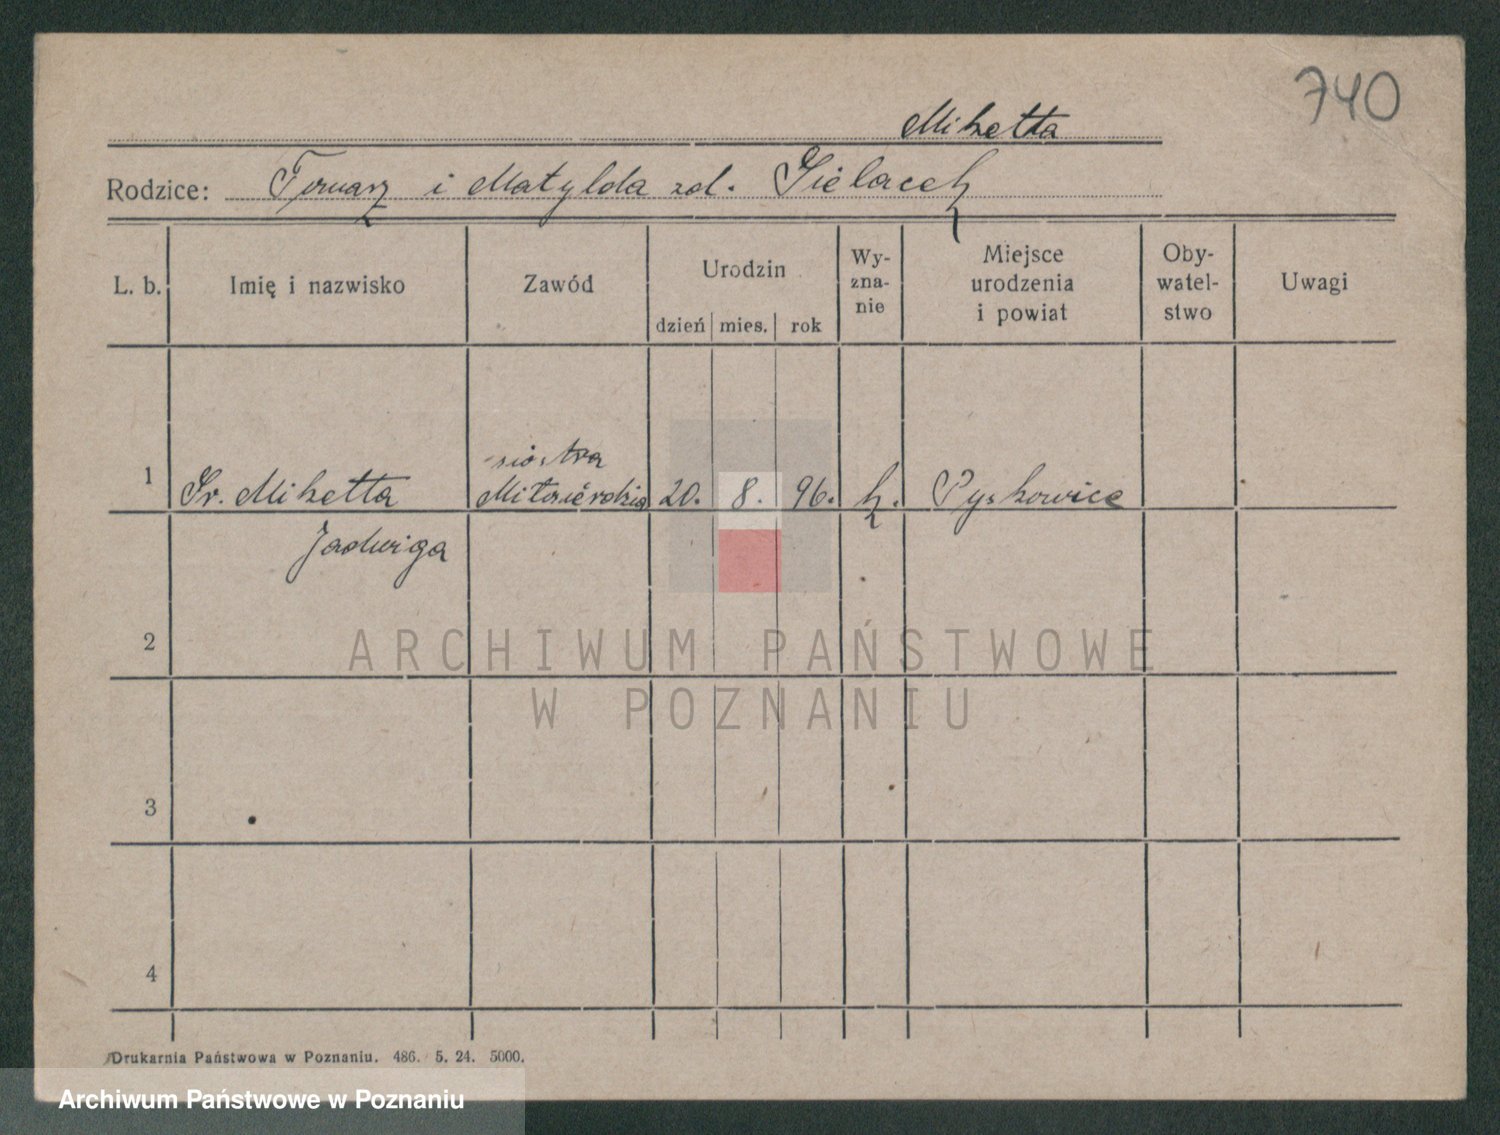 740
Miketta
Rodzice: Tomasz i Matylda zd. Gielacek
L. b. Imię i nazwisko Zawód Urodzin dzień mies. rok Wy-zna-nie Miejsce urodzenia i powiat Oby-watel-stwo Uwagi
siostra
1 Sr. Miketta Miłosierdzia 20. 8. 96. k. Pyskowice
Jadwiga
2
ARCHIWUM PAŃSTWOWE
W POZNANIU
3
4
Drukarnia Państwowa w Poznaniu. 486. 5. 24. 5000.
Archiwum Państwowe w Poznaniu